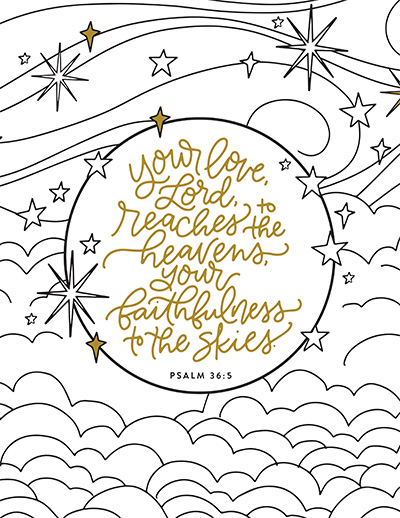 your love,
Lord,
reaches to the
heavens,
your
faithfulness
to the skies.
PSALM 36:5